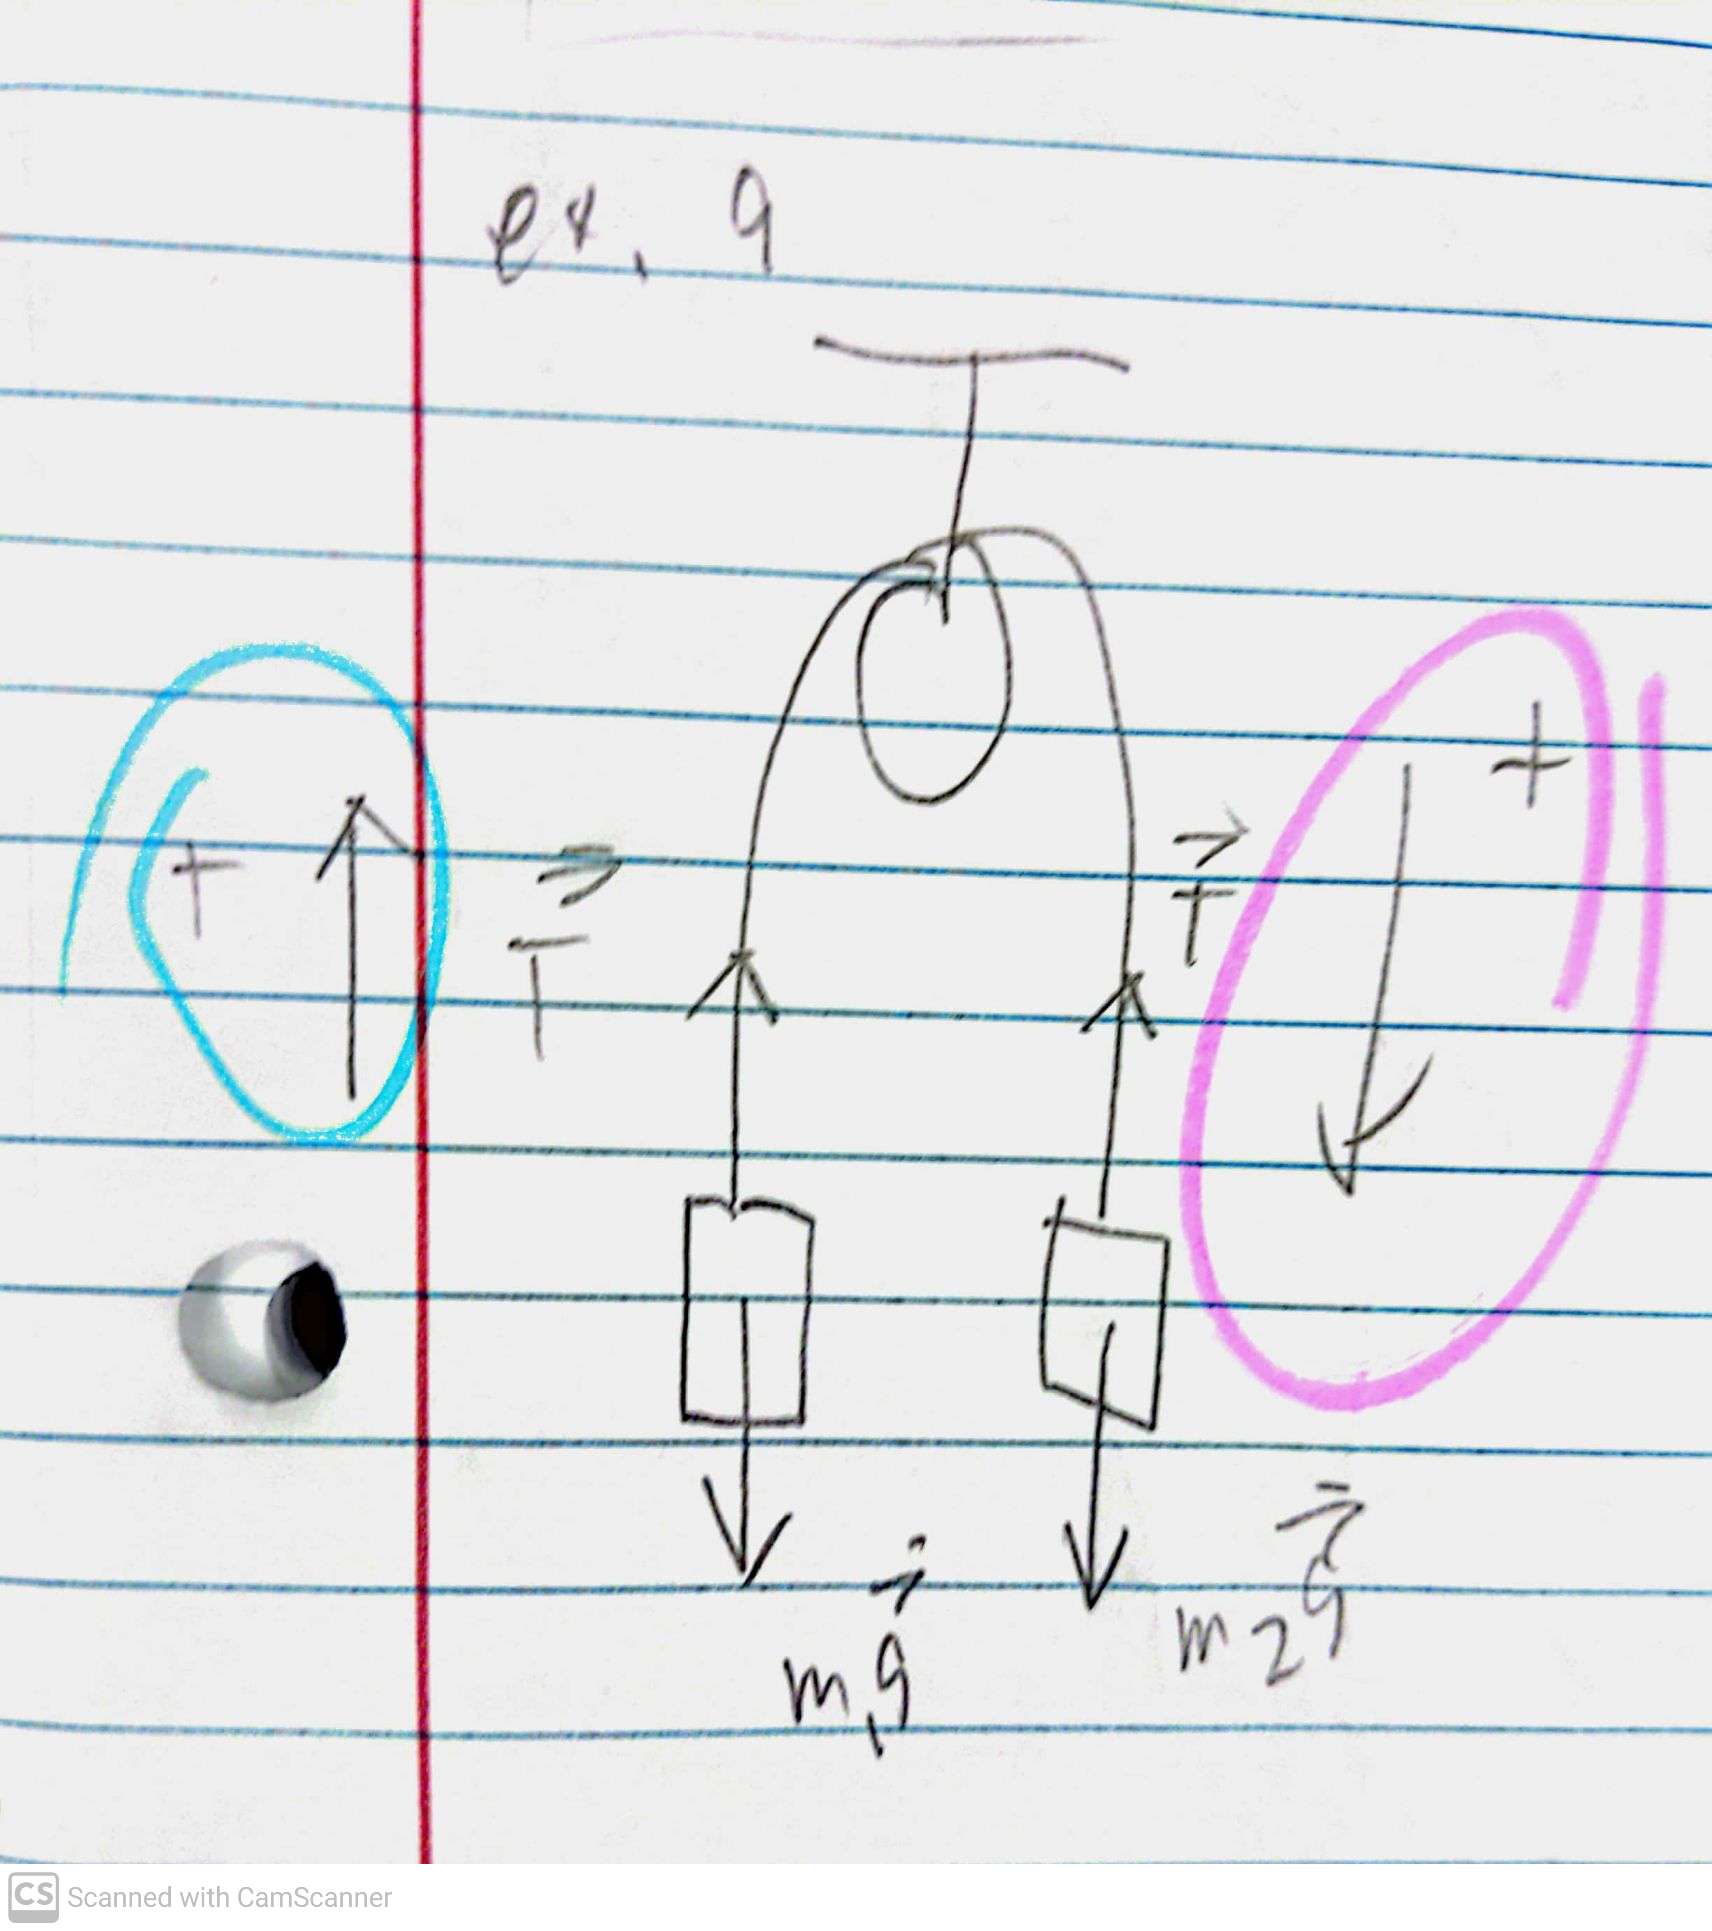 ex. 9
+
+
T
T
m₂g
m₁g
CS Scanned with CamScanner